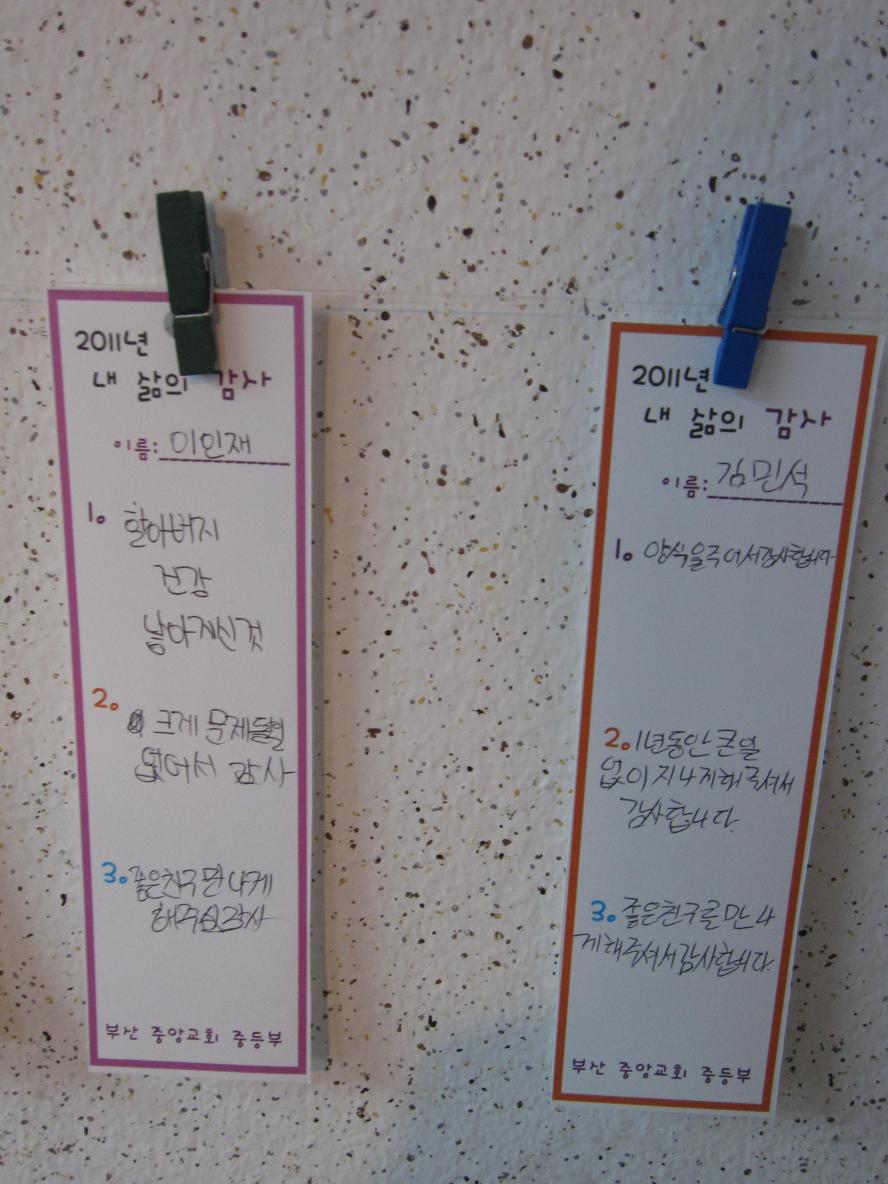 2011년
내 삶의 감사
이름: 이인재
1. 할아버지
건강
낳아지신것
2. 크게 문제될일
없어서 감사
3. 좋은친구 만나게
해주심감사
부산 중앙교회 중등부
2011년
내 삶의 감사
이름: 김민석
1. 양식을주어서감사합니다
2. 1년동안큰일
없이지나가게해주셔서
감사합니다.
3. 좋은친구를만나
게해주셔서감사합니다.
부산 중앙교회 중등부